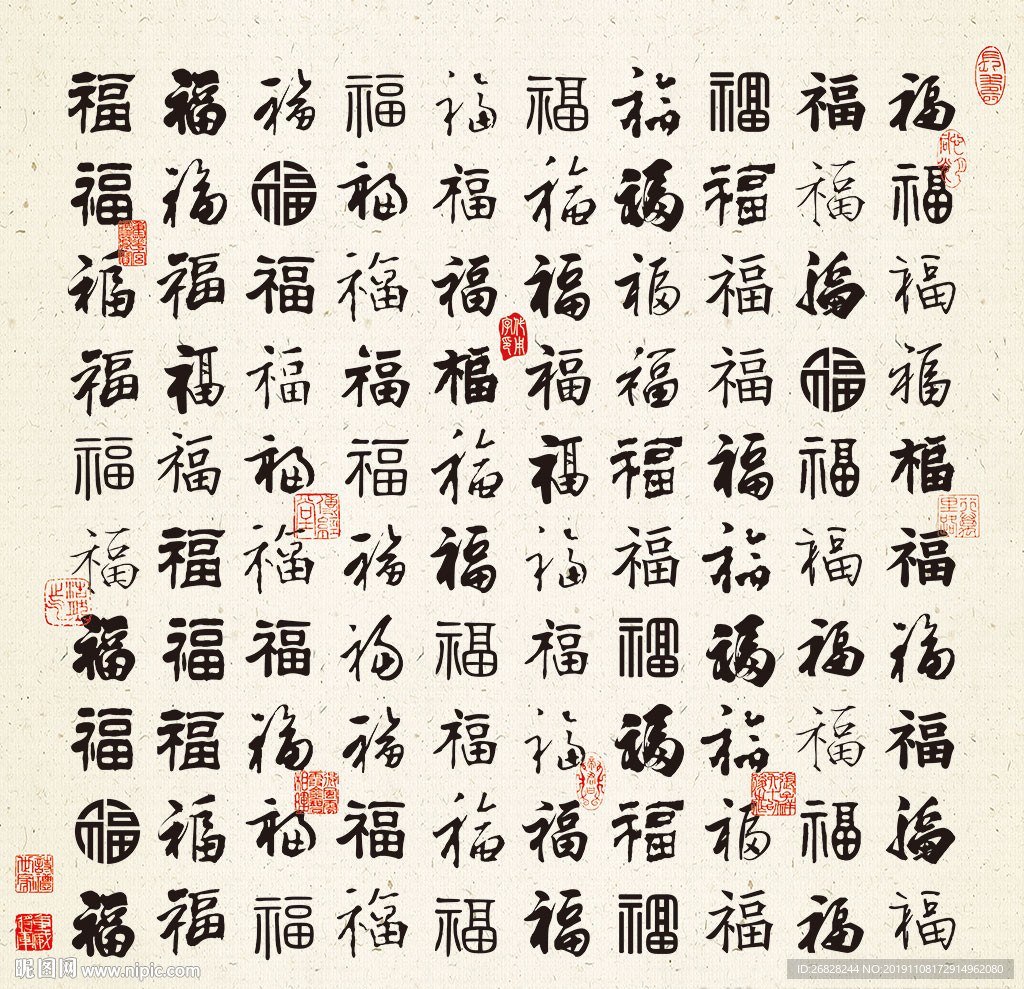 福福福福福福福福福福
福福福福福福福福福福
福福福福福福福福福福
福福福福福福福福福福
福福福福福福福福福福
福福福福福福福福福福
福福福福福福福福福福
福福福福福福福福福福
福福福福福福福福福福
福福福福福福福福福福
昵图网 www.nipic.com
ID:26828244 NO:20191108172914962080